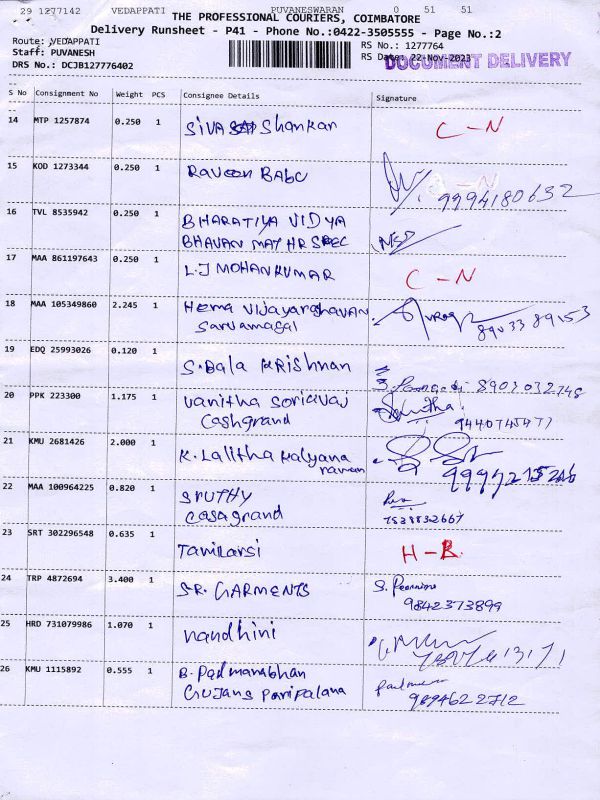 29 1277142 VEDAPPATI PUVANESWARAN 0 51 51
THE PROFESSIONAL COURIERS, COIMBATORE
Delivery Runsheet - P41 - Phone No.:0422-3505555 - Page No.:2
Route: VEDAPPATI
Staff: PUVANESH
DRS No.: DCJB127776402
RS No.: 1277764
RS Date: 22-Nov-2023
DOCUMENT DELIVERY
S No Consignment No Weight PCS Consignee Details Signature
14 MTP 1257874 0.250 1 Siva Shankar C-N
15 KOD 1273344 0.250 1 Raveen Babu 9994180632
16 TVL 8535942 0.250 1 BHARATIYA VIDYA
BHAVAN MAT HR SEC
17 MAA 861197643 0.250 1 L.J MOHANKUMAR C-N
18 MAA 105349860 2.245 1 Hema Vijayarghavan
Sarvamagal 8903389153
19 EDQ 25993026 0.120 1 S.Bala KRishnan
8903032748
20 PPK 223300 1.175 1 Vanitha
Cashgrand 9440745477
21 KMU 2681426 2.000 1 K.Lalitha Kalyana
raman
22 MAA 100964225 0.820 1 SRUTHY
Casagrand 7538832667
23 SRT 302296548 0.635 1 Tamilarsi H-B.
24 TRP 4872694 3.400 1 S.R. GARMENTS S.
9842373899
25 HRD 731079986 1.070 1 nandhini
26 KMU 1115892 0.555 1 B. Padmanabhan
Gujans Paripalana 9894622712